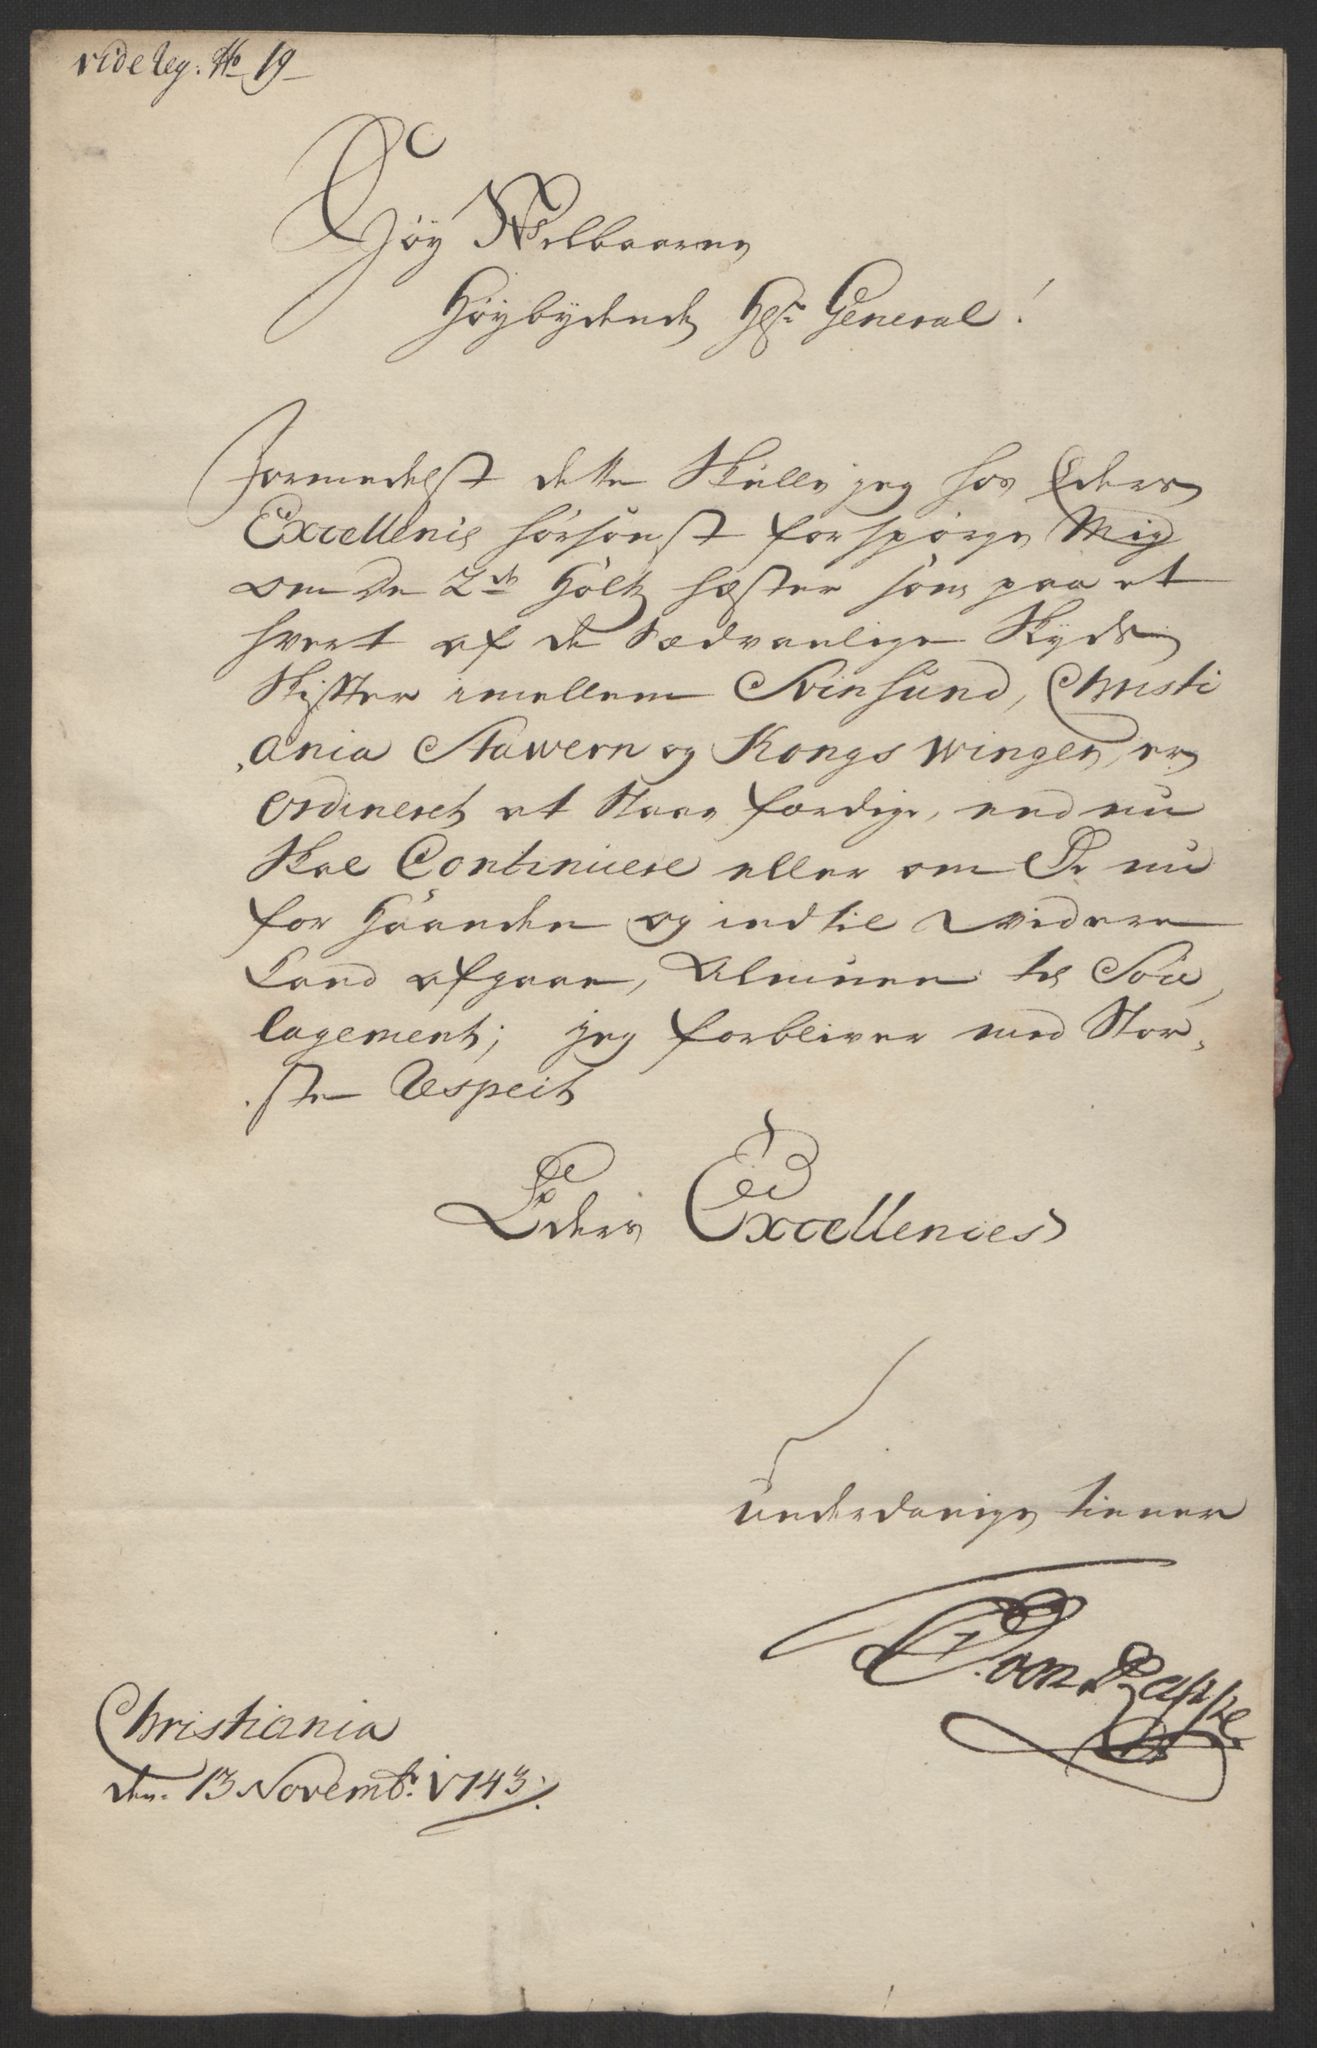 vide Reg. No 19
Høy Welbaarne
Høybydende Hr General!
Formedelst dette Skulle jeg hos Eders
Excellence forspørge Mig
om De 2de hæster som paa et
hvert af de Sædvanlige Skyds
Skiffter imellem Svinsund, Christi
ania Stawern og Kongs Winger, er
Ordineret at Staae færdige, end nu
Skal Continuere eller om De nu
for Haanden og indtil widere
Kand afgaae, Almuen til Sou
lagement; jeg forbliver med Stør
ste Respect
Eders Excellences
underdanige tiener
von Rappe
Christiania
den 13 Novembr. 1743.